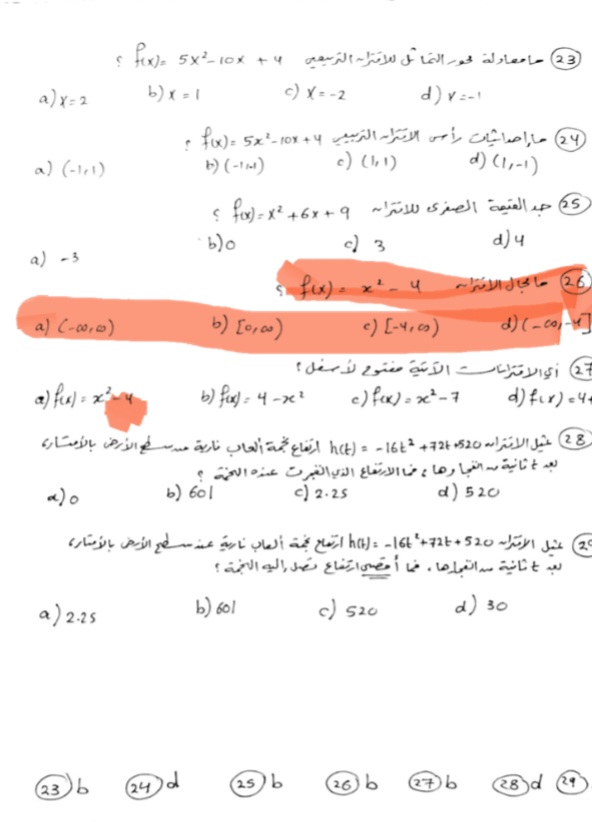 23 ما معادلة محور التماثل للاقتران التربيعي f(x) = 5x² - 10x + 4 ؟
a) x = 2 b) x = 1 c) x = -2 d) x = -1
24 ما إحداثيات رأس الاقتران التربيعي f(x) = 5x² - 10x + 4 ؟
a) (-1, 1) b) (-1, -1) c) (1, 1) d) (1, -1)
25 جد القيمة الصغرى للاقتران f(x) = x² + 6x + 9 ؟
a) -3 b) 0 c) 3 d) 4
26 ما مجال الاقتران f(x) = x² - 4 ؟
a) (-∞, ∞) b) [0, ∞) c) [-4, ∞) d) (-∞, -4]
27 أي الاقترانات الآتية مفتوح لأسفل ؟
a) f(x) = x² - 4 b) f(x) = 4 - x² c) f(x) = x² - 7 d) f(x) = 4+
28 يمثل الاقتران h(t) = -16t² + 72t + 520 ارتفاع نجمة ألعاب نارية عن سطح الأرض بالأمتار،
بعد t ثانية من انفجارها، فما الارتفاع الذي انفجرت عنده النجمة ؟
a) 0 b) 601 c) 2.25 d) 520
يمثل الاقتران h(t) = -16t² + 72t + 520 ارتفاع نجمة ألعاب نارية عند سطح الأرض بالأمتار،
بعد t ثانية من انفجارها، فما أقصى ارتفاع تصل إليه النجمة ؟
a) 2.25 b) 601 c) 520 d) 30
23 b 24 d 25 b 26 b 27 b 28 d 29